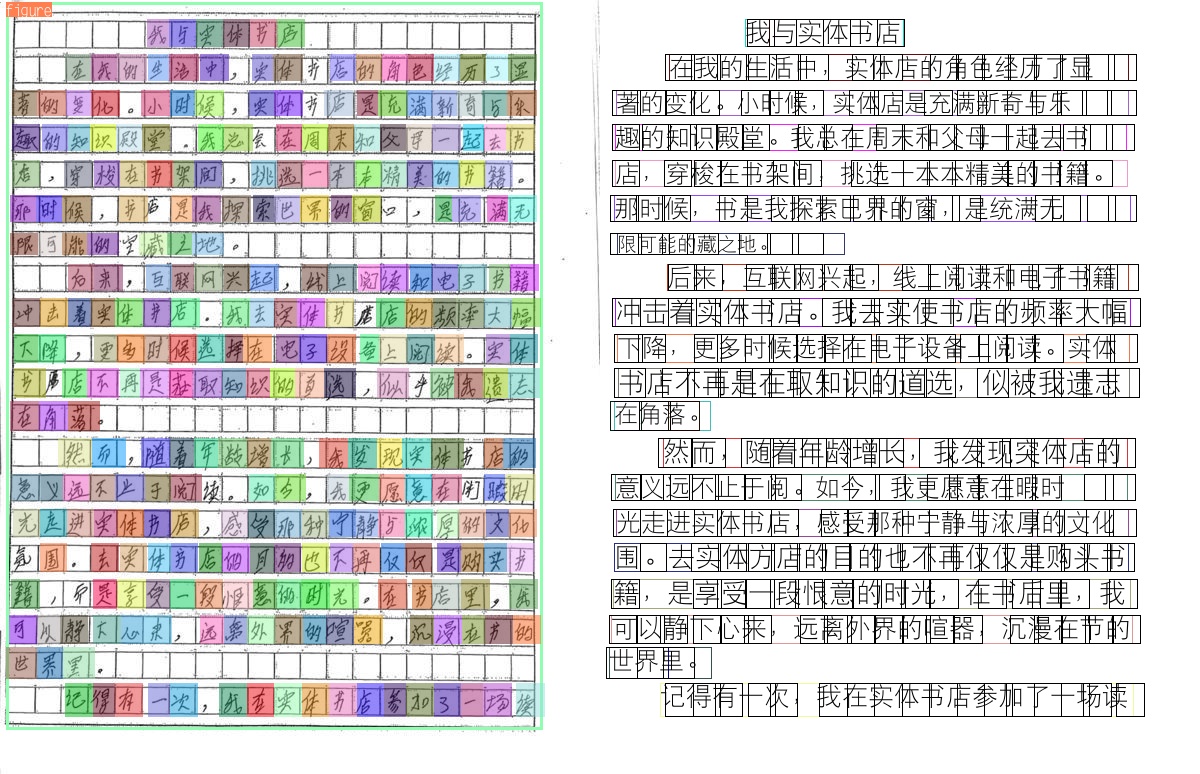 figure
我与实体书店
在我的生活中，实体书店的角色经历了显
著的变化。小时候，实体书店是充满新奇与乐
趣的知识殿堂。我总会在周末和父母一起去书
店，穿梭在书架间，挑选一本本精美的书籍。
那时候，书店是我探索世界的窗口，是充满无
限可能的宝藏之地。
后来，互联网兴起，线上阅读和电子书籍
冲击着实体书店。我去实体书店的频率大幅
下降，更多时候选择在电子设备上阅读。实体
书店不再是获取知识的首选，似乎被我遗忘
在角落。
然而，随着年龄增长，我发现实体书店的
意义远不止于阅读。如今，我更愿意在闲暇时
光走进实体书店，感受那种宁静与浓厚的文化
氛围。去实体书店的目的也不再仅仅是购买书
籍，而是享受一段惬意的时光。在书店里，我
可以静下心来，远离外界的喧嚣，沉浸在书的
世界里。
记得有一次，我在实体书店参加了一场读
我与实体书店
在我的生活中，实体店的角色经历了显
著的变化。小时候，实体店是充满新奇与乐
趣的知识殿堂。我总在周末和父母一起去书
店，穿梭在书架间，挑选一本本精美的书籍。
那时候，书是我探索世界的窗，是统满无
限可能的藏之地。
后来，互联网兴起，线上阅读和电子书籍
冲击着实体书店。我去实使书店的频率大幅
下降，更多时候选择在电子设备上阅读。实体
书店不再是在取知识的道选 似被我遗忘
在角落。
然而，随着年龄增长，我发现实体店的
意义远不止于阅 如今，我更愿意在暇时
光走进实体书店，感受那种宁静与浓厚的文化
围。去实体方店的目的也不再仅仅是购买书
籍，是享受一段恨意的时光，在书店里，我
可以静下心来 远离外界的喧嚣 沉漫在节的
世界里。
记得有一次，我在实体书店参加了一场读